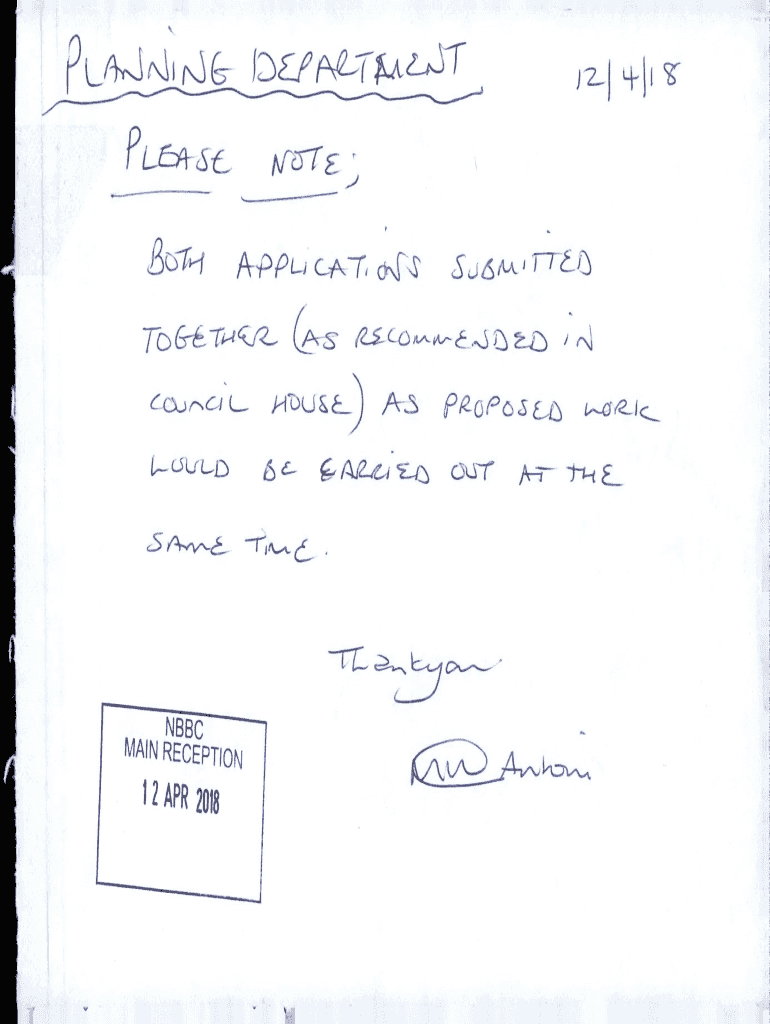 PLANNING DEPARTMENT
12/4/18
PLEASE NOTE;
BOTH APPLICATIONS SUBMITTED
TOGETHER (AS RECOMMENDED IN
COUNCIL HOUSE) AS PROPOSED WORK
WOULD BE CARRIED OUT AT THE
SAME TIME.
Thankyou
Antoni
NBBC
MAIN RECEPTION
12 APR 2018